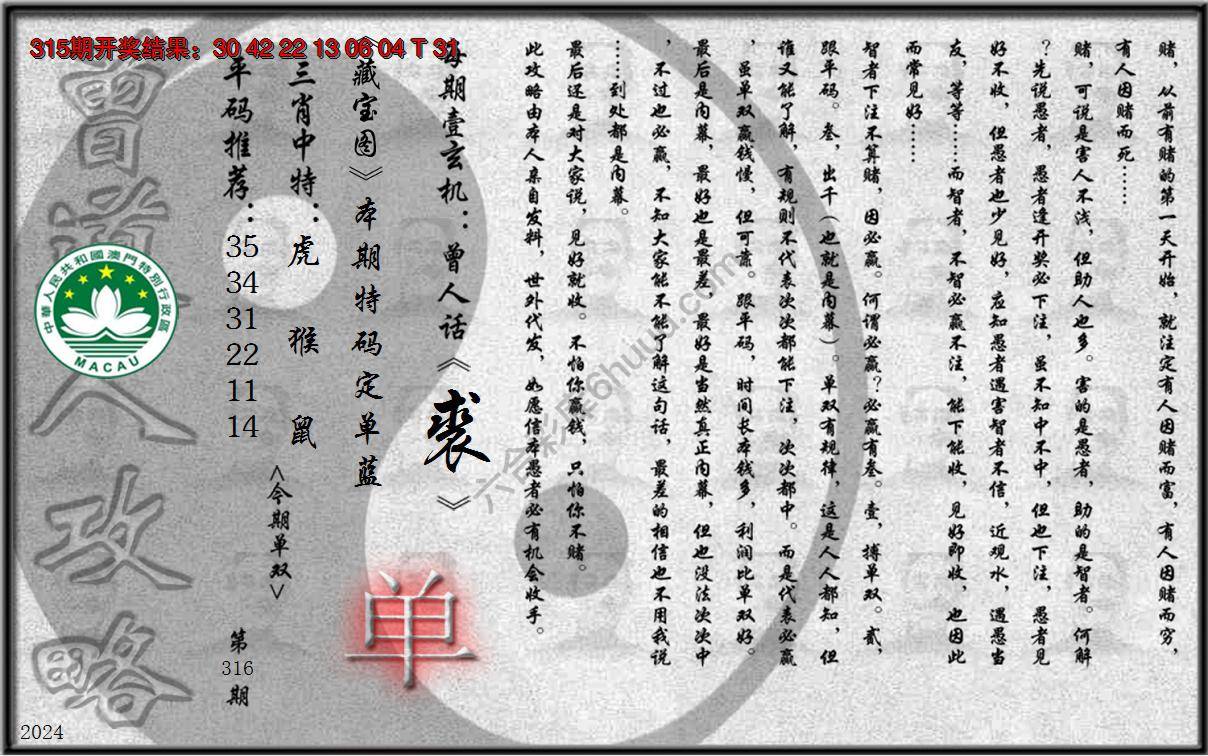 315期开奖结果：30 42 22 13 06 04 T 31
赌，从前有赌的第一天开始，就注定有人因赌而富，有人因赌而穷，
有人因赌而死……
赌，可说是害人不浅，但助人也多。害的是愚者，助的是智者。何解
？先说愚者，愚者逢开奖必下注，虽不知中不中，但也下注，愚者见
好不收，但愚者也少见好，应知愚者遇害智者不信，近观水，遇愚当
友，等等……而智者，不智必赢不注，能下能收，见好即收，也因此
而常见好……
智者下注不算赌，因必赢。何谓必赢？必赢有叁。壹，搏单双。贰，
跟平码。叁，出千（也就是内幕）。单双有规律，这是人人都知，但
谁又能了解，有规则不代表次次都能下注，次次都中。而是代表必赢
，虽单双赢钱慢，但可靠。跟平码，时间长本钱多，利润比单双好。
最后是内幕，最好也是最差，最好是当然真正内幕，但也没法次次中
，不过也必赢，不知大家能不能了解这句话，最差的相信也不用我说
……到处都是内幕。
最后还是对大家说，见好就收。不怕你赢钱，只怕你不赌。
此攻略由本人亲自发料，世外代发，如愿信本愚者必有机会收手。
每期壹玄机：曾人话《裘》
《藏宝图》本期特码定单蓝
三肖中特：虎 猴 鼠
平码推荐：
35
34
31
22
11
14
<今期单双>
单
第
316
期
曾道人攻略
中華人民共和國澳門特別行政區
MACAU
六合彩库6huuu.com
2024